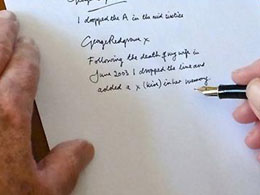 I dropped the A in the mid sixties
George Redgrave x
Following the death of my wife in
June 2003 I dropped the line and
added a x (kiss) in her memory